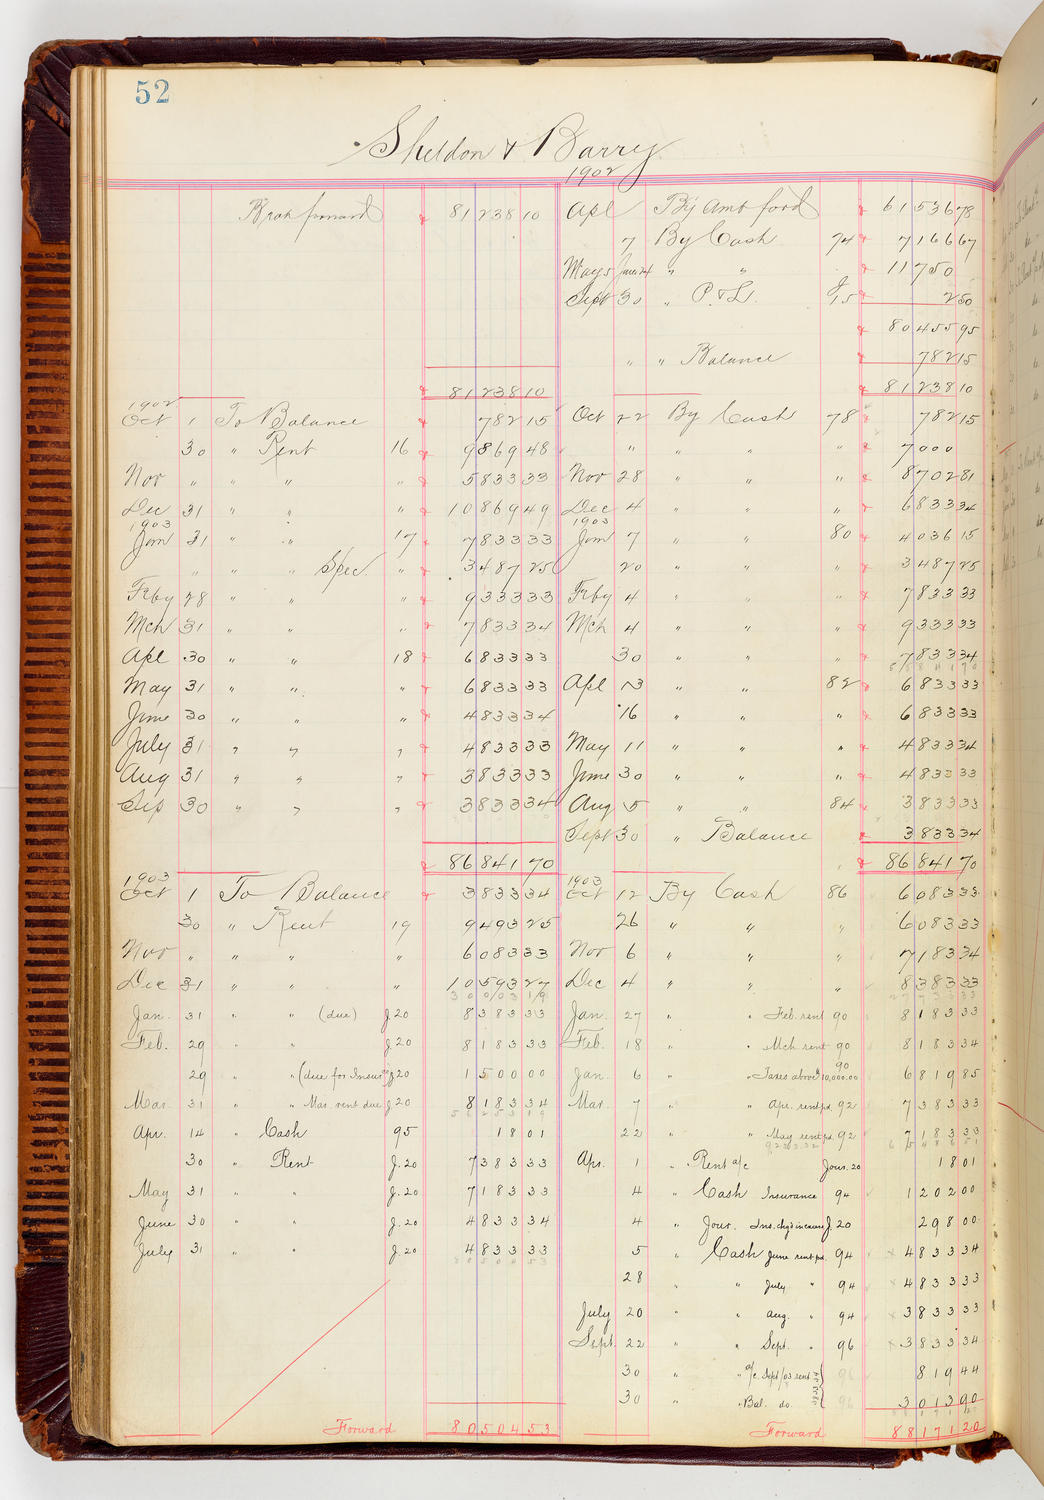 52
Sheldon & Barry
1902
81238 10 Apl By Amt ford 61536 78
7 By Cash 74 7166 67
" " 11750
Sept 30 " P. & L. J/15 2 50
80455 95
" " Balance 782 15
81238 10 81238 10
1902
Oct 1 To Balance 782 15 Oct 22 By Cash 78 782 15
30 " Rent 16 9869 48 " " " " 7000
Nov " " " " 5833 33 Nov 28 " " " 8702 81
Dec 31 " " " 10869 49 Dec 4 " " " 6833 34
1903 1903
Jan 31 " " 17 7833 33 Jan 7 " " 80 4036 15
" " " Spec. " 3487 25 20 " " " 3487 25
Feby 28 " " " 9333 33 Feby 4 " " " 7833 33
Mch 31 " " " 7833 34 Mch 4 " " " 9333 33
Apl 30 " " 18 6833 33 30 " " " 7833 34
May 31 " " " 6833 33 Apl 13 " " 82 6833 33
June 30 " " " 4833 34 16 " " " 6833 33
July 31 " " " 4833 33 May 11 " " " 4833 34
Aug 31 " " " 3833 33 June 30 " " " 4833 33
Sep 30 " " " 3833 34 Aug 5 " " 84 3833 33
Sept 30 " Balance 3833 34
86841 70 86841 70
1903 1903
Oct 1 To Balance 3833 34 Oct 12 By Cash 86 6083 33
30 " Rent 19 9493 25 26 " " " 6083 33
Nov " " " " 6083 33 Nov 6 " " " 7183 34
Dec 31 " " " 10593 27 Dec 4 " " " 8383 33
Jan. 31 " " (due) J 20 8383 33 Jan. 27 " " Feb. rent 90 8183 33
Feb. 29 " " J 20 8183 33 Feb. 18 " " Mch rent 90 8183 34
29 " " (due for Insur J 20 1500 00 Jan. 6 " " Taxes above 10,000.00 90 6819 85
Mar. 31 " " Mar. rent due J 20 8183 34 Mar. 7 " " Apr. rent pd. 92 7383 33
Apr. 14 " Cash 95 18 01 22 " " May rent pd. 92 7183 33
30 " Rent J. 20 7383 33 Apr. 1 " Rent a/c Jour. 20 18 01
May 31 " " J. 20 7183 33 4 " Cash Insurance 94 1202 00
June 30 " " J. 20 4833 34 4 " Jour. Ins. chgd in error J. 20 298 00
July 31 " " J. 20 4833 33 5 " Cash June rent pd. 94 4833 34
28 " " July " 94 4833 33
July 20 " " Aug. " 94 3833 33
Sept. 22 " " Sept. " 96 3833 34
30 " " a/c. Sept/03 rent 96 819 44
30 " " Bal. do. 96 3013 90
Forward 80504 53 Forward 88171 20